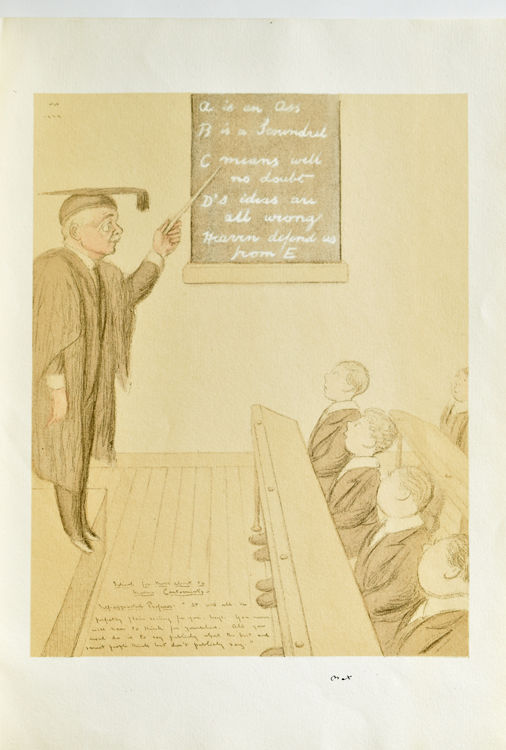 A is an Ass
B is a Scoundrel
C means well
no doubt
D's ideas are
all wrong
Heaven defend us
from E
School for those about to
become Cartoonists.
Self-appointed Professor: "It will all be
perfectly plain sailing for you, boys. You never
will have to think for yourselves. All you
need do is to say publicly what the best and
think but don't publicly say."
Max